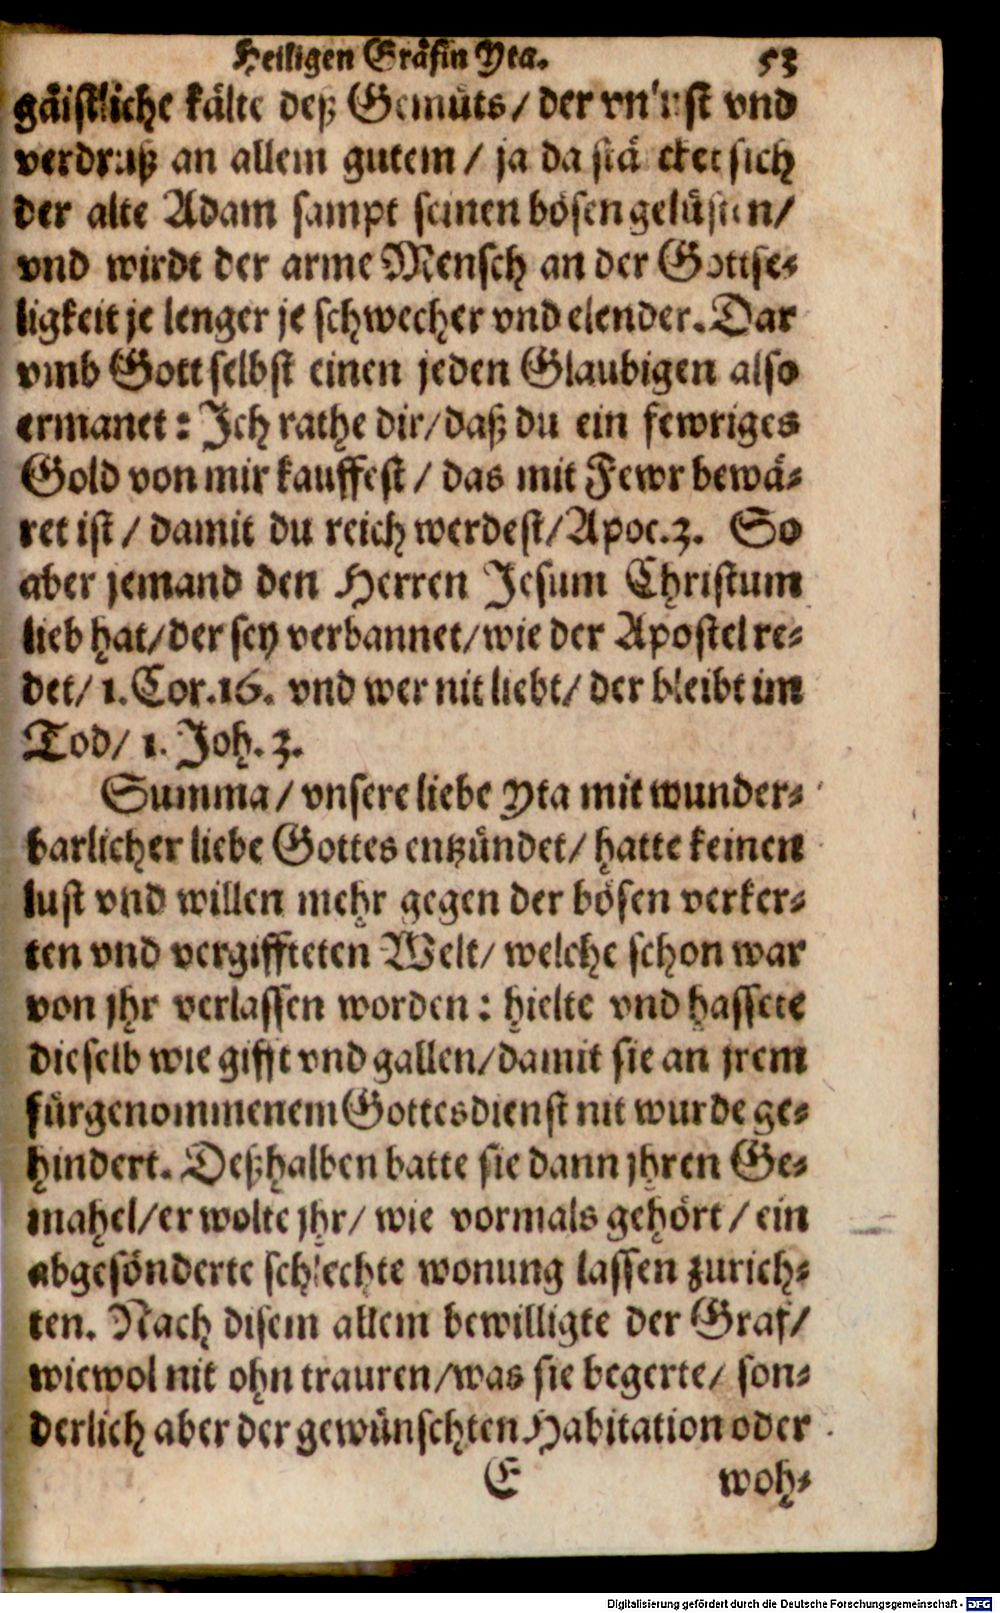 Heiligen Gräfin Yta. 53
gäistliche kälte deß Gemüts / der vnlust vnd
verdruß an allem gutem / ja da stärcket sich
der alte Adam sampt seinen bösen gelüsten /
vnd wirdt der arme Mensch an der Gottse-
ligkeit je lenger je schwecher vnd elender. Dar
vmb Gott selbst einen jeden Glaubigen also
ermanet: Ich rathe dir / daß du ein fewriges
Gold von mir kauffest / das mit Fewr bewä-
ret ist / damit du reich werdest / Apoc. 3. So
aber jemand den Herren Jesum Christum
lieb hat / der sey verbannet / wie der Apostel re-
det / 1. Cor. 16. vnd wer nit liebt / der bleibt im
Tod / 1. Joh. 3.
Summa / vnsere liebe Yta mit wunder-
barlicher liebe Gottes entzündet / hatte keinen
lust vnd willen mehr gegen der bösen verker-
ten vnd vergiffteten Welt / welche schon war
von jhr verlassen worden: hielte vnd hassete
dieselb wie gifft vnd gallen / damit sie an jrem
fürgenommenem Gottesdienst nit wurde ge-
hindert. Deßhalben batte sie dann jhren Ge-
mahel / er wolte jhr / wie vormals gehört / ein
abgesönderte schlechte wonung lassen zurich-
ten. Nach disem allem bewilligte der Graf /
wiewol nit ohn trauren / was sie begerte / son-
derlich aber der gewünschten Habitation oder
E woh-
Digitalisierung gefördert durch die Deutsche Forschungsgemeinschaft - DFG